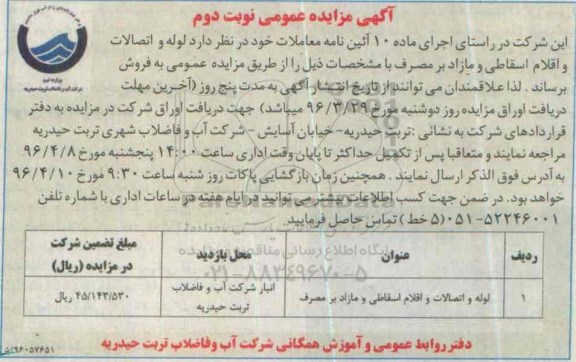 آگهی مزایده عمومی نوبت دوم
این شرکت در راستای اجرای ماده ۱۰ آئین نامه معاملات خود در نظر دارد لوله و اتصالات
و اقلام اسقاطی و مازاد بر مصرف با مشخصات ذیل را از طریق مزایده عمومی به فروش
برساند . لذا علاقمندان می توانند از تاریخ انتشار آگهی به مدت پنج روز (آخرین مهلت
دریافت اوراق مزایده روز دوشنبه مورخ ۹۶/۳/۲۹ میباشد) جهت دریافت اوراق شرکت در مزایده به دفتر
قراردادهای شرکت به نشانی :تربت حیدریه- خیابان آسایش - شرکت آب و فاضلاب شهری تربت حیدریه
مراجعه نمایند و متعاقبا پس از تکمیل حداکثر تا پایان وقت اداری ساعت ۱۴:۰۰ پنجشنبه مورخ ۹۶/۴/۸
به آدرس فوق الذکر ارسال نمایند . همچنین زمان بازگشایی پاکات روز شنبه ساعت ۹:۳۰ مورخ ۹۶/۴/۱۰
خواهد بود. در ضمن جهت کسب اطلاعات بیشتر می توانید در ایام هفته در ساعات اداری با شماره تلفن
۵۲۲۴۶۰۰۱-۰۵۱ (۵ خط ) تماس حاصل فرمایید
پایگاه اطلاع رسانی مناقصه و مزایده
۰۲۱-۸۸۳۴۹۶۷۰-۵
ردیف عنوان محل بازدید مبلغ تضمین شرکت در مزایده (ریال)
۱ لوله و اتصالات و اقلام اسقاطی و مازاد بر مصرف انبار شرکت آب و فاضلاب تربت حیدریه ۴۵/۱۴۳/۵۳۰ ریال
دفتر روابط عمومی و آموزش همگانی شرکت آب وفاضلاب تربت حیدریه
۵/۹۶۰۵۷۶۵۱
وزارت نیرو